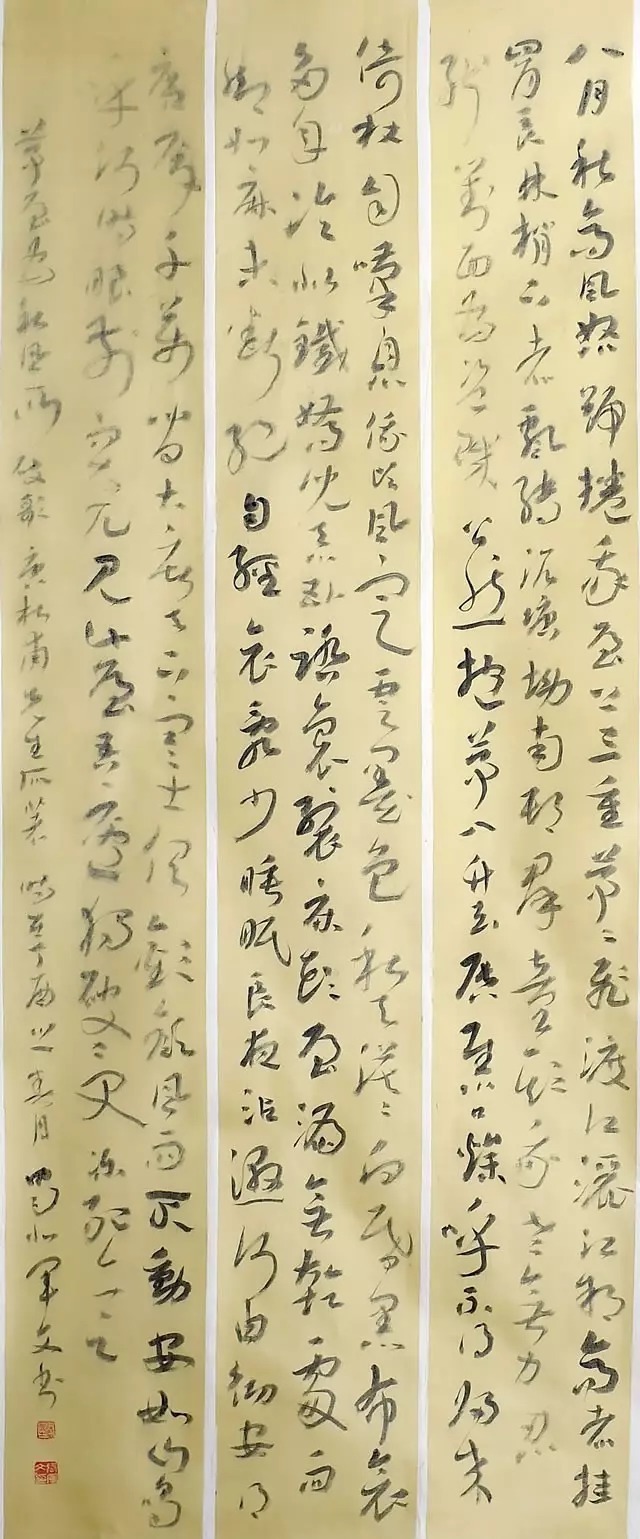 八月秋高風怒號捲我屋上三重茅〻飛渡江灑江郊高者挂
罥長林梢下者飄轉沉塘坳南村群童欺我老無力忍
能對面為盜賊公然抱茅入竹去唇焦口燥呼不得歸來
倚杖自嘆息俄頃風定雲墨色秋天漠〻向昏黑布衾
多年冷似鐵嬌兒惡臥踏裏裂床頭屋漏無乾處雨
腳如麻未斷絕自經喪亂少睡眠長夜沾濕何由徹安得
廣廈千萬間大庇天下寒士俱歡顏風雨不動安如山嗚
呼何時眼前突兀見此屋吾廬獨破受凍死亦足
茅屋為秋風所破歌 唐杜甫先生 時在丁酉之春月 蜀北軍文書